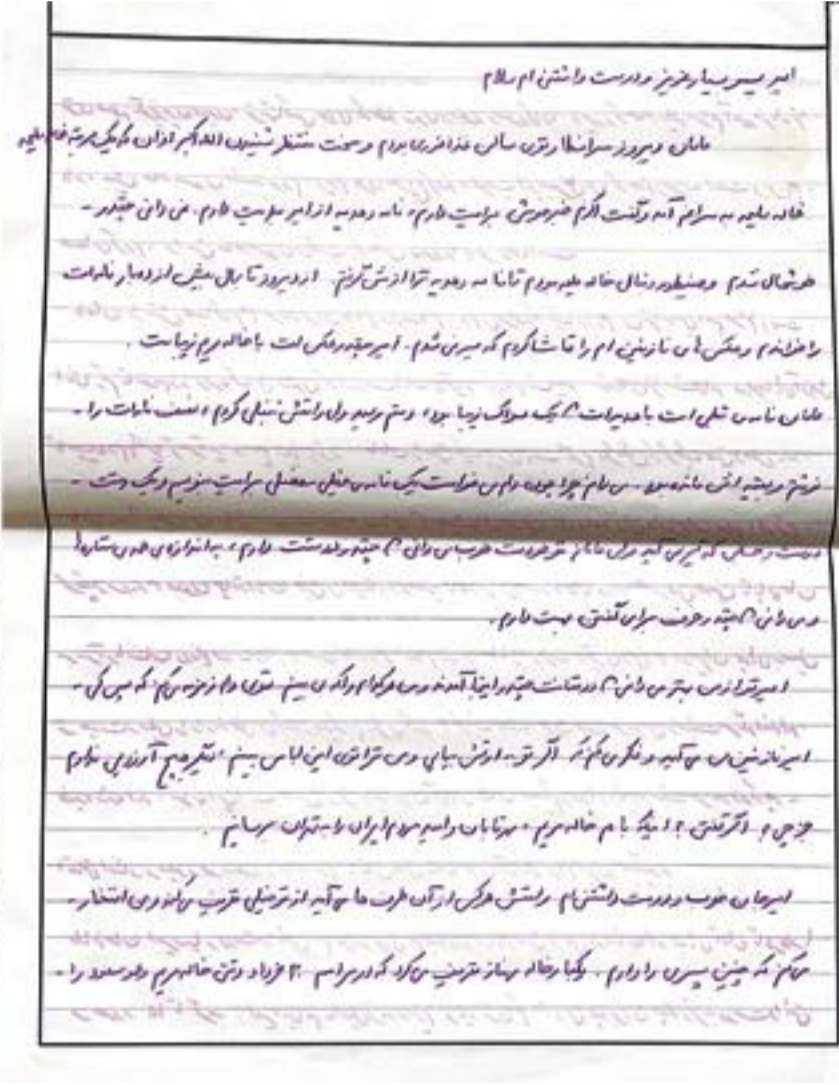 امیر پسر بسیار عزیز و دوست داشتنی ام سلام
مامان دیروز سر افطار توی سالن غذاخوری بودم و سخت منتظر شنیدن الله اکبر اذان که یک مرتبه خاله ملیحه
خاله ملیحه به سراغم آمد و گفت اکرم خبر خوش برایت دارم، نامه رسیده از امیر برایت دارم. می دانی چقدر -
خوشحال شدم و همینطور دنبال خاله ملیحه بودم تا نامه رسیده ترا ازش بگیرم. از دیروز تا بحال بیش از ده بار نامه ات
را خواندم و عکس های نازنین ام را تماشا کردم که سیر نمی شدم. امیر چقدر عکس ات با خاله مریم زیباست.
مامان نامه ی قبلی ات با هدیه ات که یک عروسک زیبا بود، دستم رسید ولی راستش تنبلی کردم، نصف نامه ات را -
نوشتم و بقیه اش مانده بود. نمی دانم چرا چون دلم می خواست یک نامه ی خیلی مفصل برایت بنویسم و یک وقت -
درست و حسابی که گیر نمی آید ولی مامان تو خودت خوب می دانی که چقدر دوستت دارم، به اندازه ی همه ی ستاره ها
و می دانی که چقدر حرف برای گفتن بهت دارم.
امیر تو از من بهتر می دانی که دوستانت چقدر اینجا آمدند و من هر کدام را که می بینم توی دلم زمزمه می کنم که پس کی -
امیر نازنین من می آید و فکر می کنم که اگر تو به ارتش بیایی و من ترا توی این لباس ببینم، دیگر هیچ آرزویی ندارم
جز چی؟ اگر گفتی؟! اینکه با هم خاله مریم، مهر تابان و امید مردم ایران را به تهران برسانیم.
امیر جان خوب و دوست داشتنی ام راستش هر کس از آن طرف ها می آید از تو خیلی تعریف می کند و من افتخار -
می کنم که چنین پسری را دارم. یکبار خاله بهناز تعریف می کرد که در مراسم ۳۰ خرداد وقتی خاله مریم و عمو مسعود را -